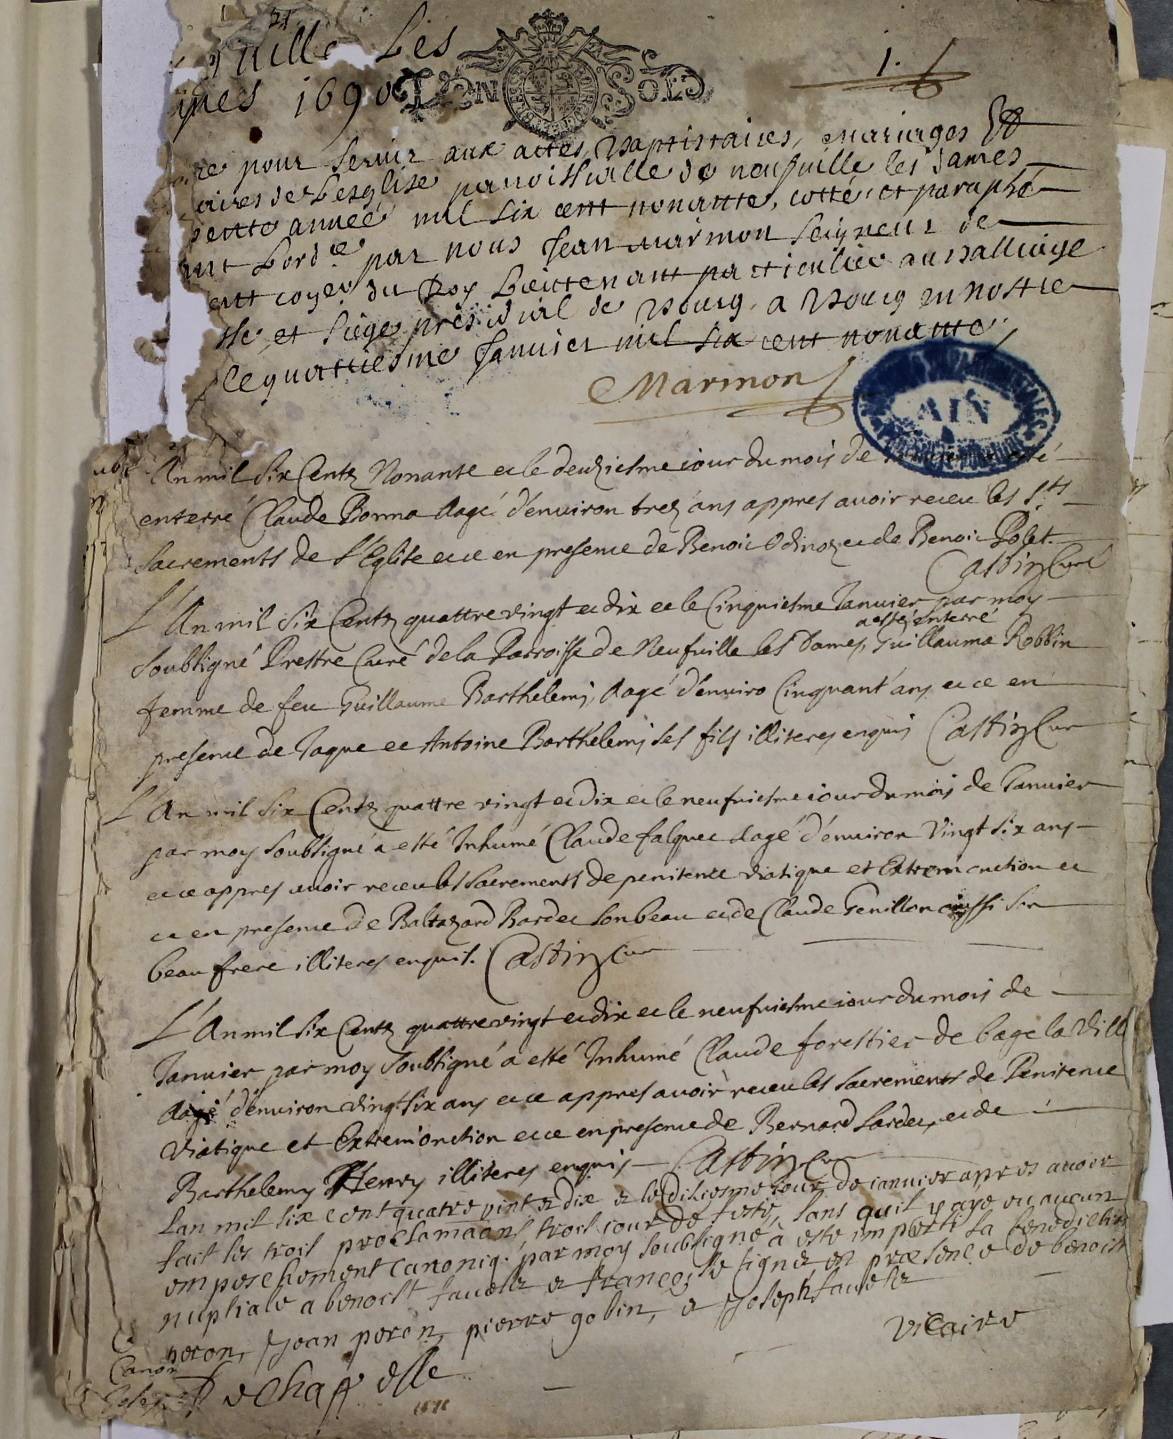 uille Les
mes 1690 UN SOLD 1.
re pour servir aux actes baptistaires, mariages &
aires de L'esglise parroissialle de neufville les dames
sente année mil six cent nonante, cotté et paraphé
ent L'ord.ce par nous Jean marmon seigneur de
cuyer du Roy Lieutenant particulier au balliage
sse et siège présidial de Bourg, a Bourg en nostre
le quatriesme Janvier mil six cent nonante
Marmon
AIN
An mil six Centz Nonante et le deuziesme iour du mois de té
enterré Claude Bonna Aagé d'environ trez ans appres avoir receu les Sts
Sacrements de l'Eglise et ce en presence de Benoit Odinoz et de Benoi Polet.
Castin Curé
L'An mil six Centz quattre vingt et dix et le Cinquiesme Januier par moy
a esté enterré
soubsigné Prestre Curé de la Parroisse de Neufuille les Dames, Guillauma Robbin
femme de feu Guillaume Barthelemi, Aagé d'enuiro Cinquant' ans et ce en
presence de Jaque et Antoine Barthélemi ses fils illiteres enquis Castin Cur
L'An mil six Centz quattre vingt et dix et le neufuiesme iour du mois de Januier
par moy soubsigné a esté Inhumé Claude falquet Aagé d'enuiron Vingt six ans
et ce appres auoir receu les sacrements de penitence viatique et Extremonction et
ce en presence de Baltazard Bardet son beau et de Claude Genillon aussi son
beau frere illiteres enquis. Castin Cur
L'An mil six Centz quattre vingt et dix et le neufuiesme iour du mois de
Januier par moy soubsigné a esté Inhumé Claude forestier de bage la Ville
Aagé d'enuiron vingt six ans et ce appres avoir receu les sacrements de Penitence
Viatique et Extremonction et ce en presence de Bernard Sardet, et de
Barthelemy Henry illiteres enquis Castin Cur
Lan mil six cent quatre vint et dix et le diziesme iour de ianuier apres auoir
fait les trois proclamaons trois iour de feste, sans quil y aye eu aucun
empeschement canoniq. par moy soubsigné a esté imparti la benediction
nuptiale a benoist fauelle et francoise signé en presence de benoist
peron, Jean peron, pierre gobin, et Joseph fauelle
Dechappelle vicaire